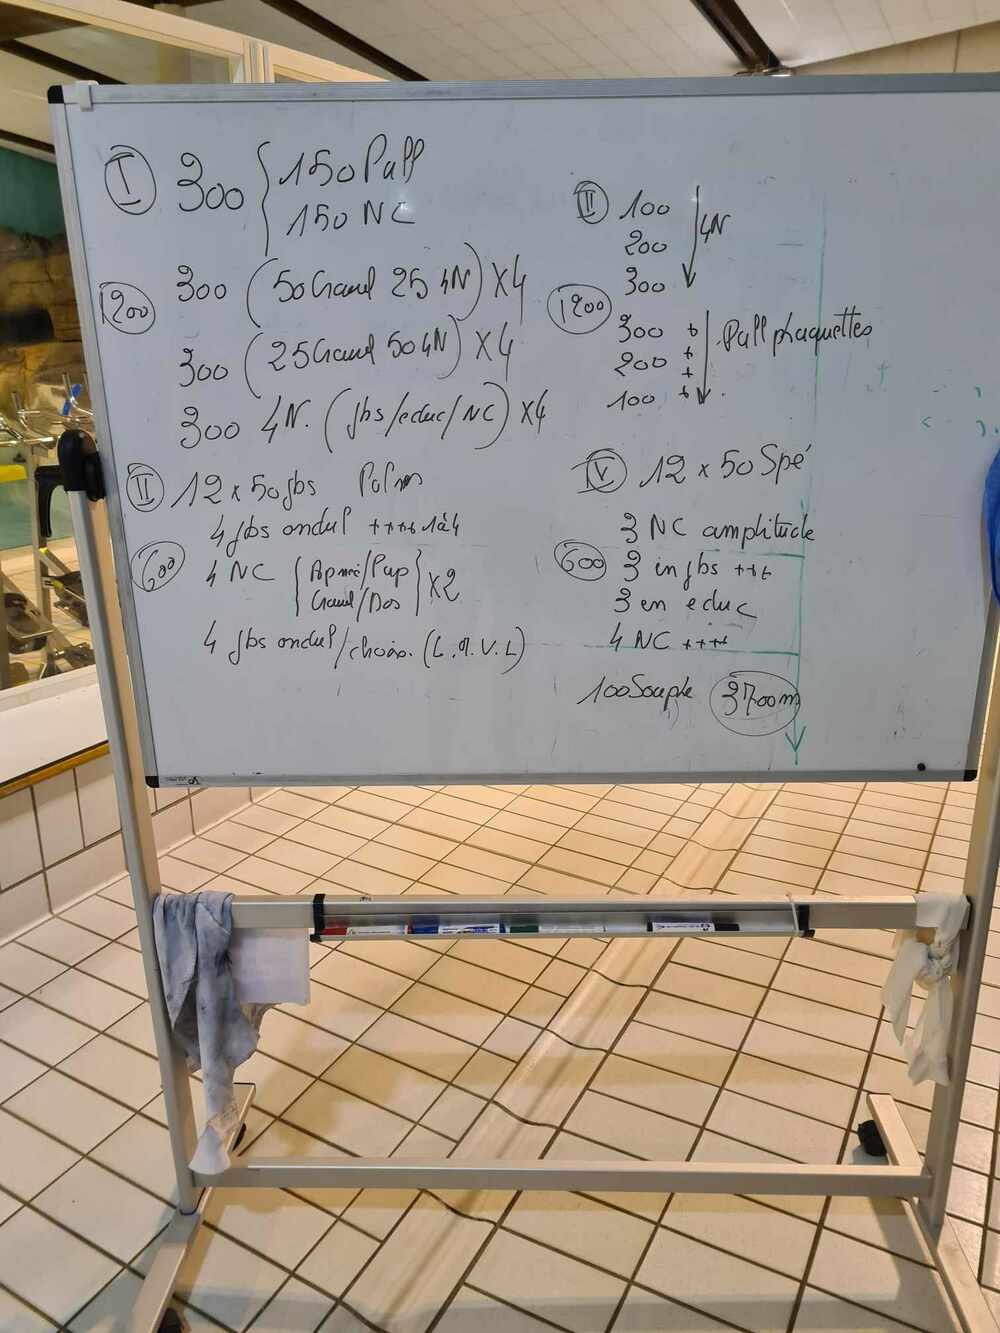 I 300 { 150 Pull
150 NC
1200
300 (50 Crawl 25 4N) x4
300 (25 Crawl 50 4N) x4
300 4N. (jbs/educ/NC) x4
II 12 x 50 jbs Palm
4 jbs ondul ++++ 1à4
600
4 NC { Apnée/Pap
Crawl/Dos } x2
4 jbs ondul/choix. (L.A.V.L)
II 100
200
300
4N
1200
300 +
200 +
+
100 +
Pull plaquettes
IV 12 x 50 Spé
3 NC amplitude
600 3 in jbs +++
3 en educ
4 NC ++++
100 Souple 3700m